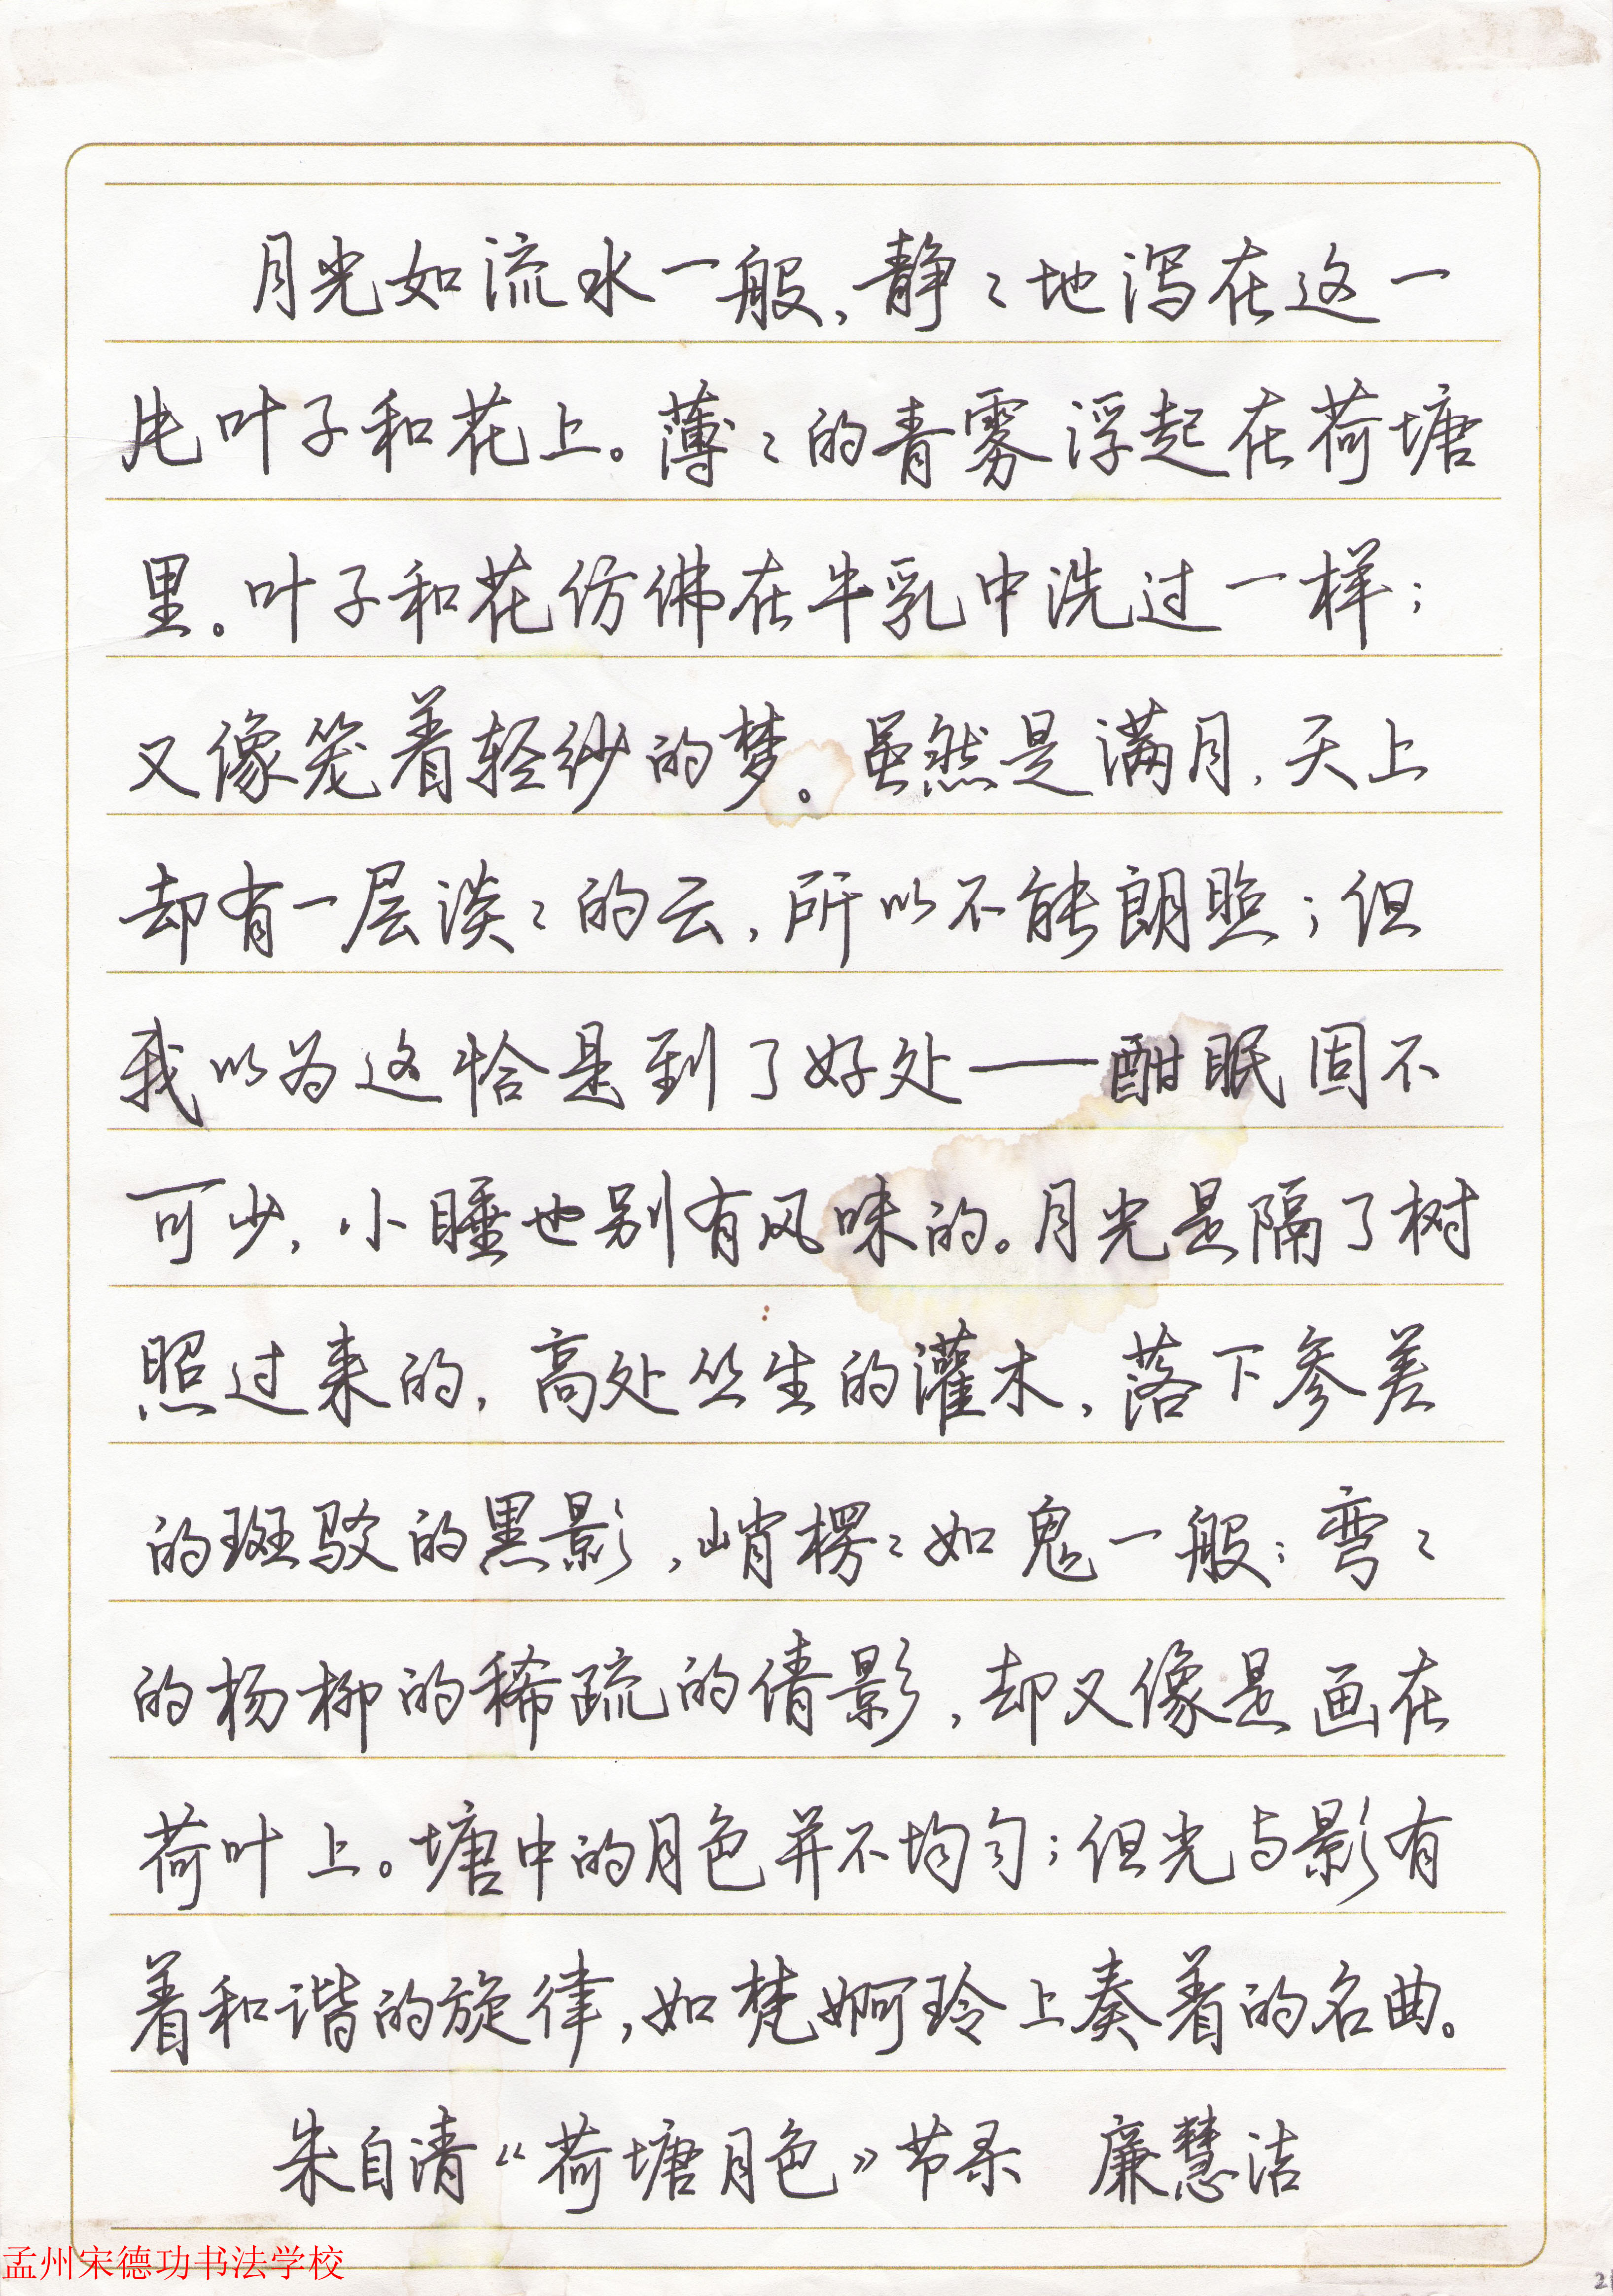 月光如流水一般，静々地泻在这一
片叶子和花上。薄々的青雾浮起在荷塘
里。叶子和花仿佛在牛乳中洗过一样；
又像笼着轻纱的梦。虽然是满月，天上
却有一层淡々的云，所以不能朗照；但
我以为这恰是到了好处——酣眠固不
可少，小睡也别有风味的。月光是隔了树
照过来的，高处丛生的灌木，落下参差
的斑驳的黑影，峭楞々如鬼一般；弯々
的杨柳的稀疏的倩影，却又像是画在
荷叶上。塘中的月色并不均匀；但光与影有
着和谐的旋律，如梵婀玲上奏着的名曲。
朱自清《荷塘月色》节录 廉慧洁
孟州宋德功书法学校
21